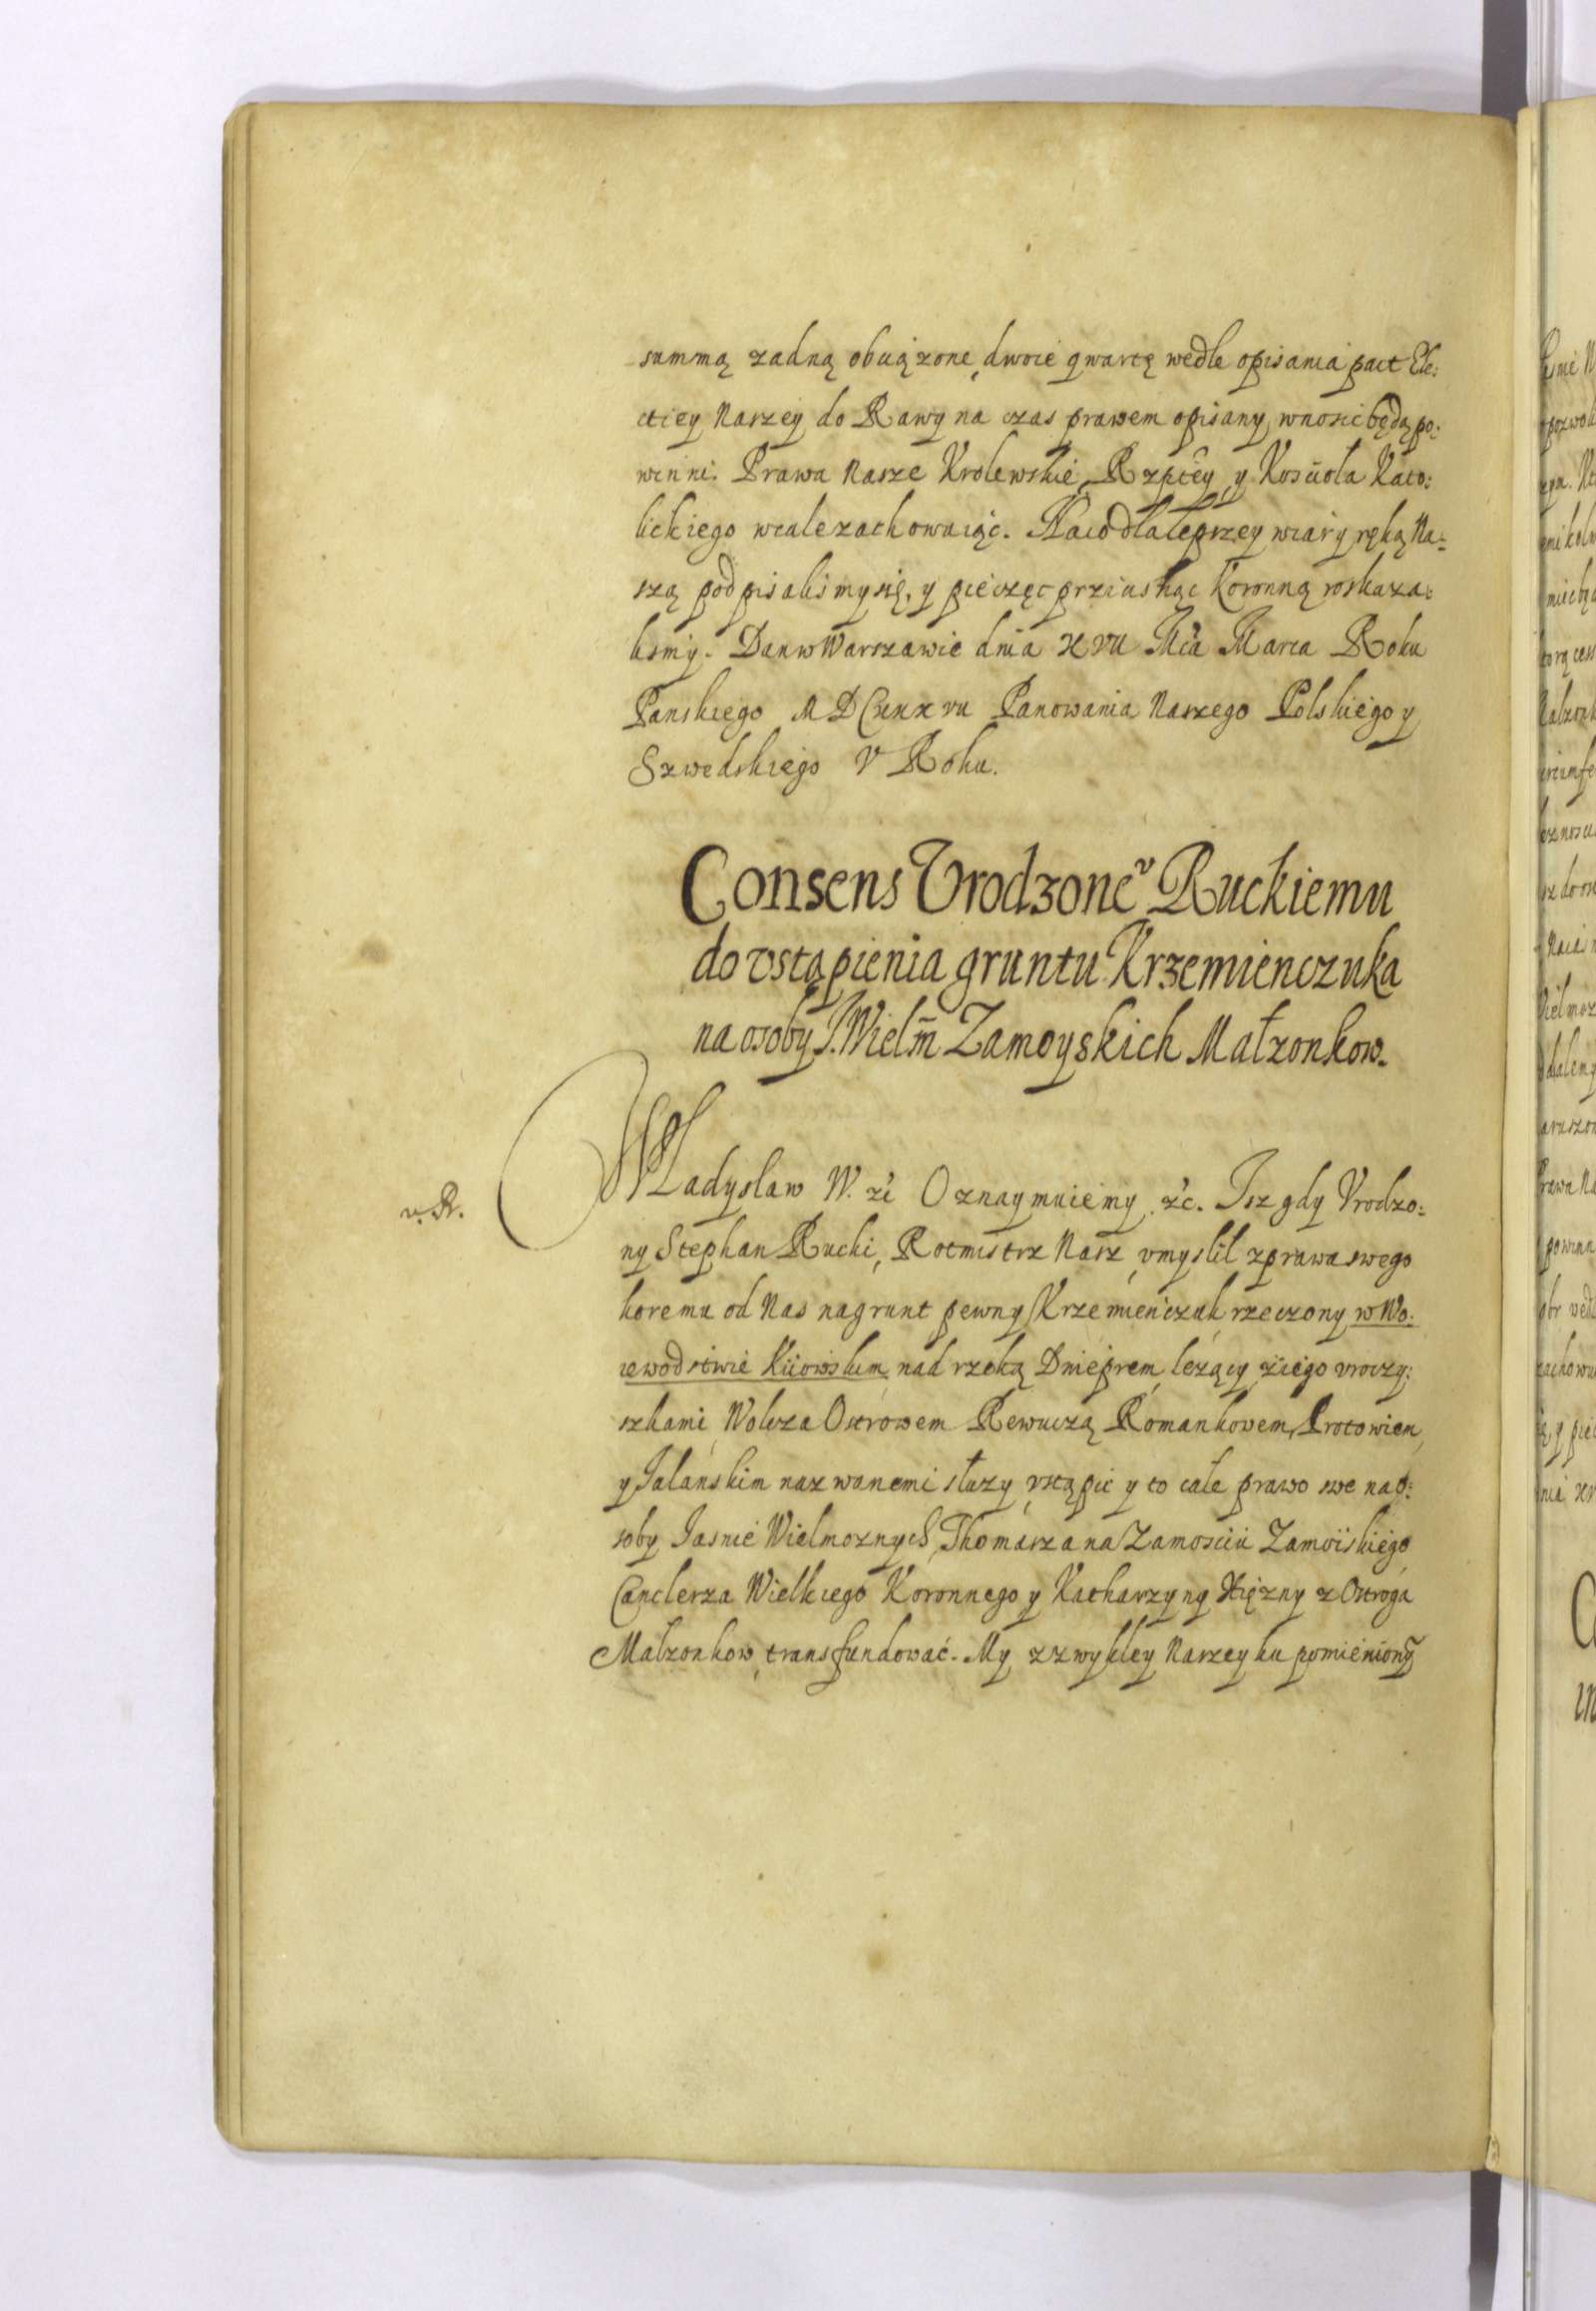 summą zadną obciązone, dwoie qwartę wedle opisania pact Ele:
ctiey Naszey do Rawy na czas prawem opisany wnosic będą po:
winni. Prawa Nasze Krolewskie, Rzptey y Koscioła Kato:
lickiego wcale zachowuiąc. Na co dla lepszey wiary ręką Na:
szą podpisalismy się, y pieczęc przicisnąc Koronną roskaza:
lismy. Dan w Warszawie dnia XVII Mca Marca Roku
Panskiego MDCXXXVII Panowania Naszego Polskiego y
Szwedskiego V Roku.
Consens Vrodzone͏ᵛ Ruckiemu
do vstąpienia gruntu Krzemienczuka
na osoby J. Wielm̄ Zamoyskich Małzonkow.
WLadyslaw IV. &c Oznaymuiemy &c. Isz gdy Vrodzo:
v. R.
ny Stephan Rucki, Rotmistrz Nasz, vmyslil z prawa swego
koremu od Nas na grunt pewny Krzemienczuk rzeczony w Wo:
iewodstwie Kiiowskim nad rzeką Dnieprem, lezący z iego vroczy:
szkami, Wolcza Ostrowem Rewuczą Romankovem, Protowien,
y Jalanskim nazwanemi słuzy, vstąpic y to całe prawo swe na o:
soby Jasnie Wielmoznych, Thomasza na Zamosciu Zamoiskiego
Canclerza Wielkiego Koronnego y Katharzyny Xiężny z Ostroga
Malzonkow, transfundować. My z zwykley Naszey ku pomienionỹ